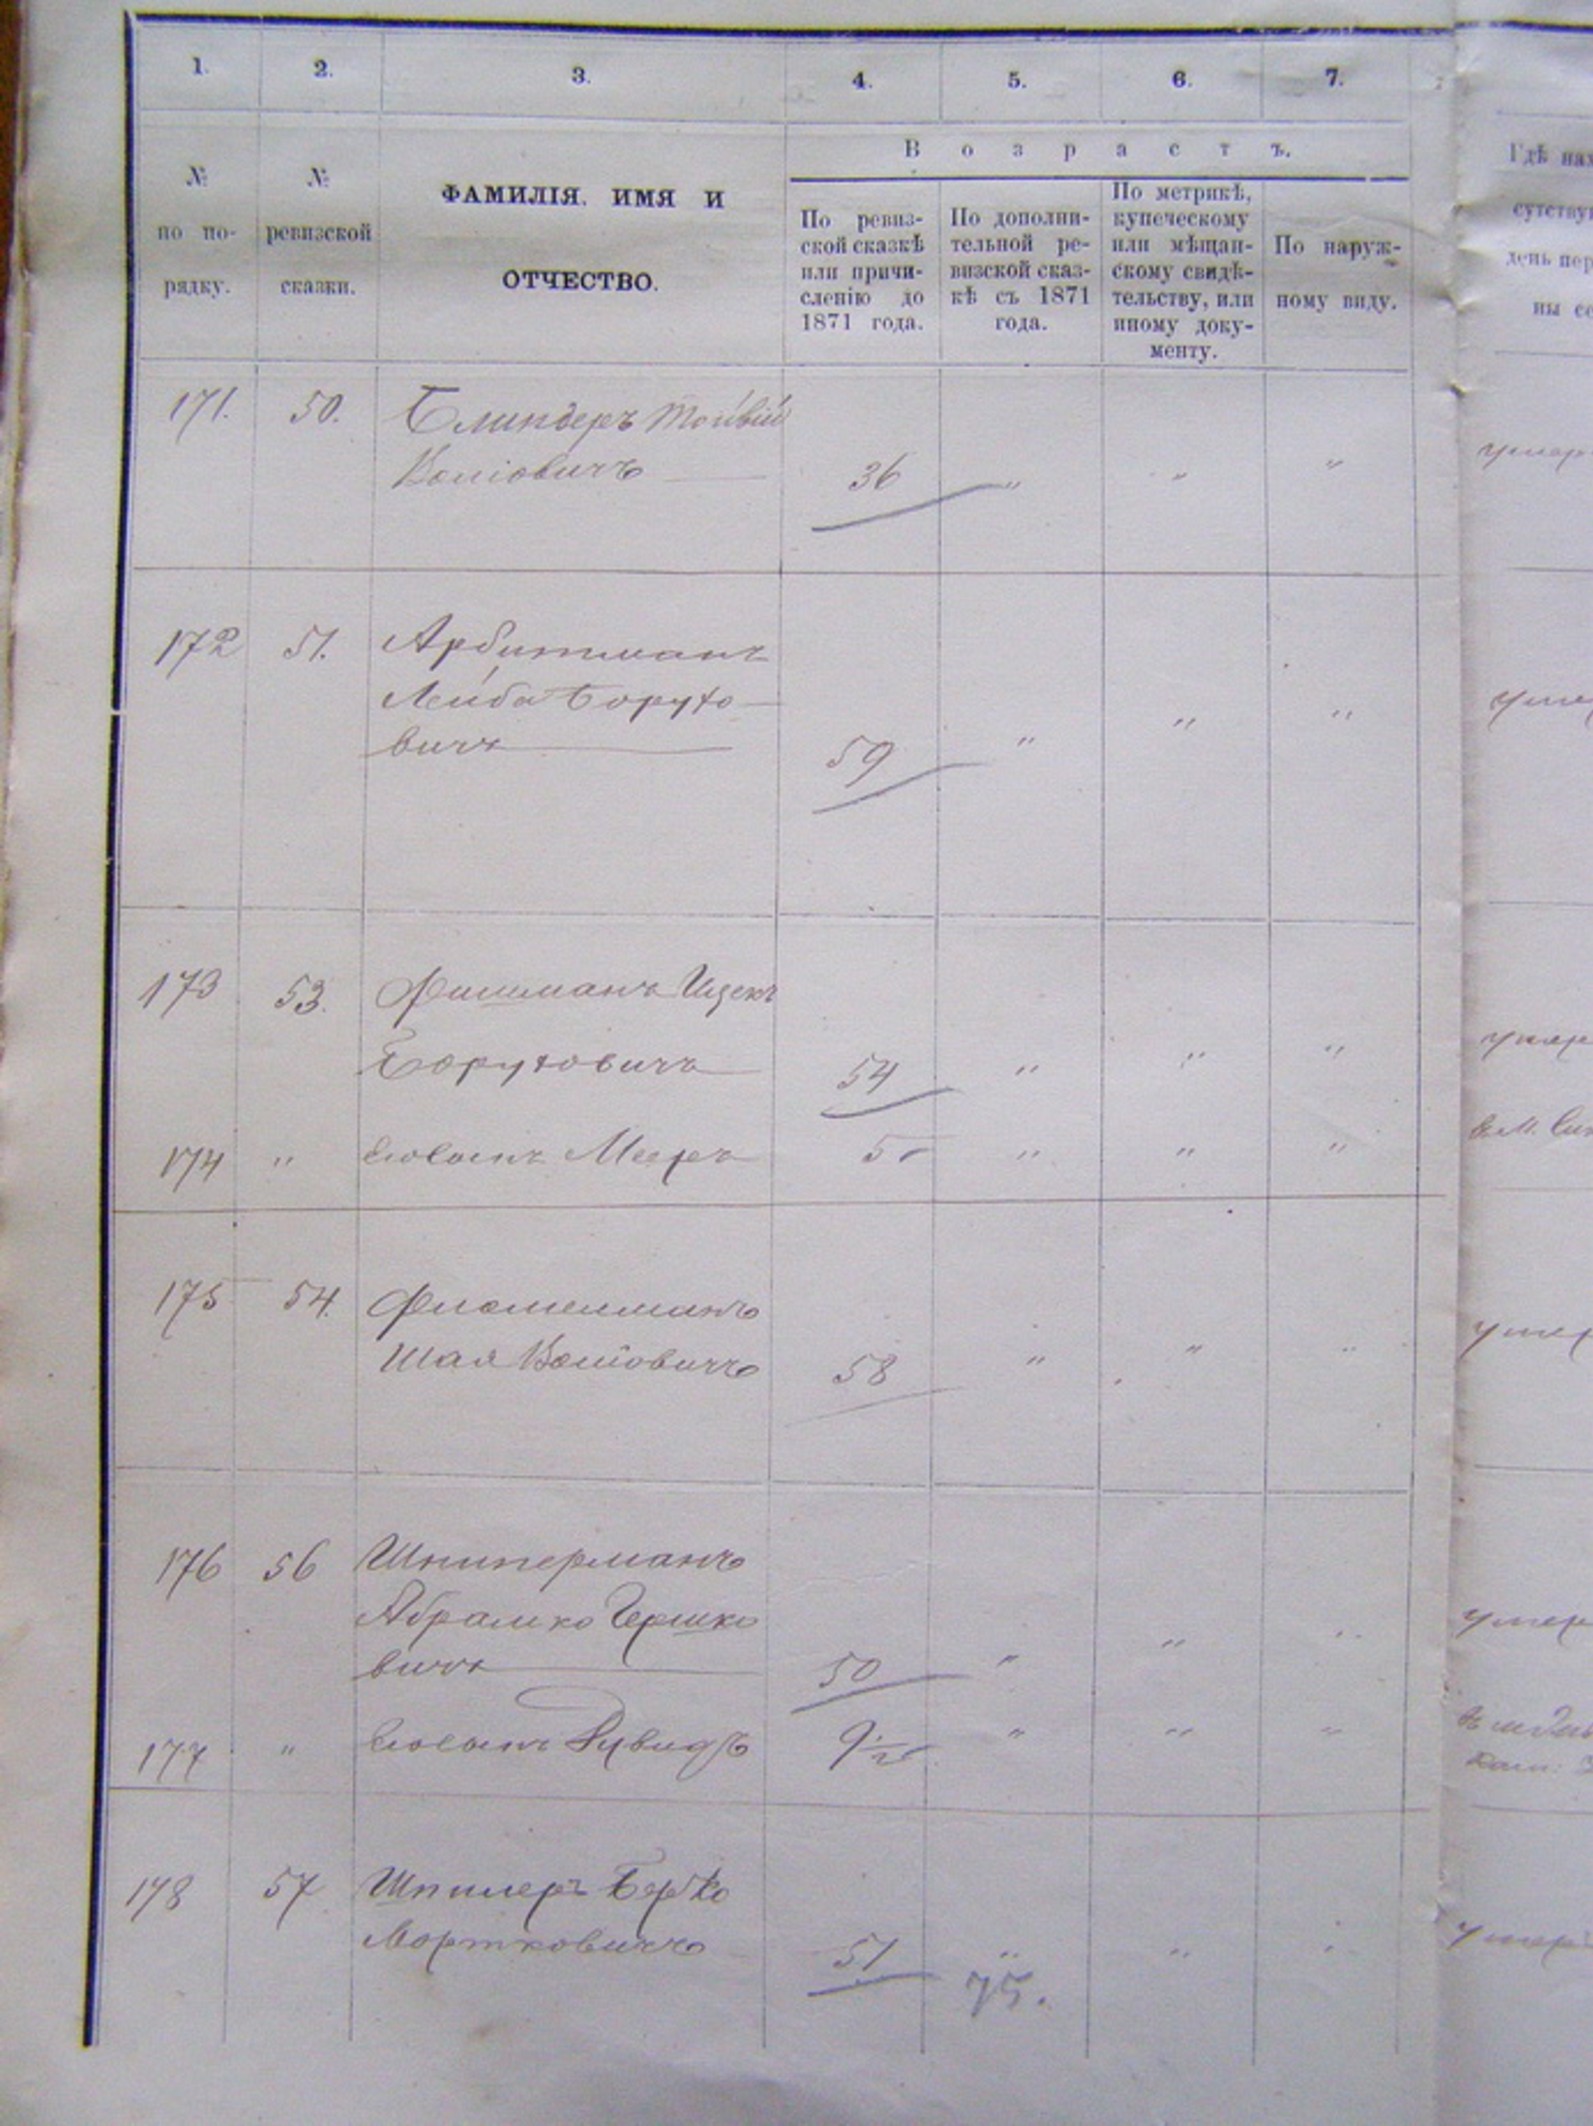 1. 2. 3. 4. 5. 6. 7.
№ по по-рядку.
№ ревизской сказки.
ФАМИЛІЯ, ИМЯ И
ОТЧЕСТВО.
В о з р а с т ъ.
По ревиз-
ской сказкѣ
или причи-
сленію до
1871 года.
По дополни-
тельной ре-
визской сказ-
кѣ съ 1871
года.
По метрикѣ,
купеческому
или мѣщан-
скому свидѣ-
тельству, или
иному доку-
менту.
По наруж-
ному виду.
Гдѣ нах
сутству
день пер
ны се
171. 50. Блиндеръ
36 " " "
умер
172 51. Арбитманъ
Лейба Борухо-
вичъ 59 " " "
умер
173 53. Фишманъ Ицекъ
Боруховичъ 54 " " "
умер
174 " Сынъ Мееръ 5 " " "
175 54.
Шая 58 " " "
умер
176 56 Шниперманъ
Абрамко Гершко
вичъ 50 " " "
умер
177 " Давидъ 9½ " " "
178 57 Шпилеръ Берко
Мортковичъ 51 " " "
умеръ
75.